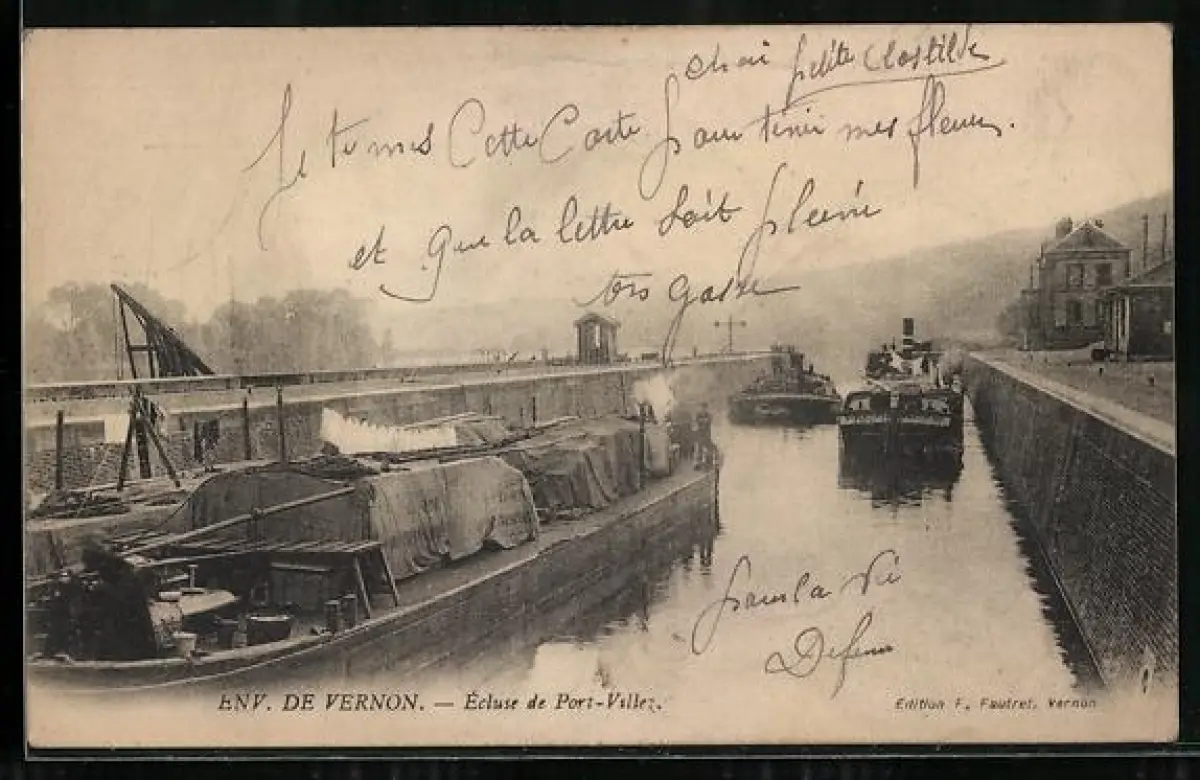 chai petite Clostilde
Je te mes Cette Carte pour tenir mes fleurs.
et que la lettre soit pleine
pour la vi
ENV. DE VERNON. — Écluse de Port-Villez.
Edition F. Fautret, Vernon